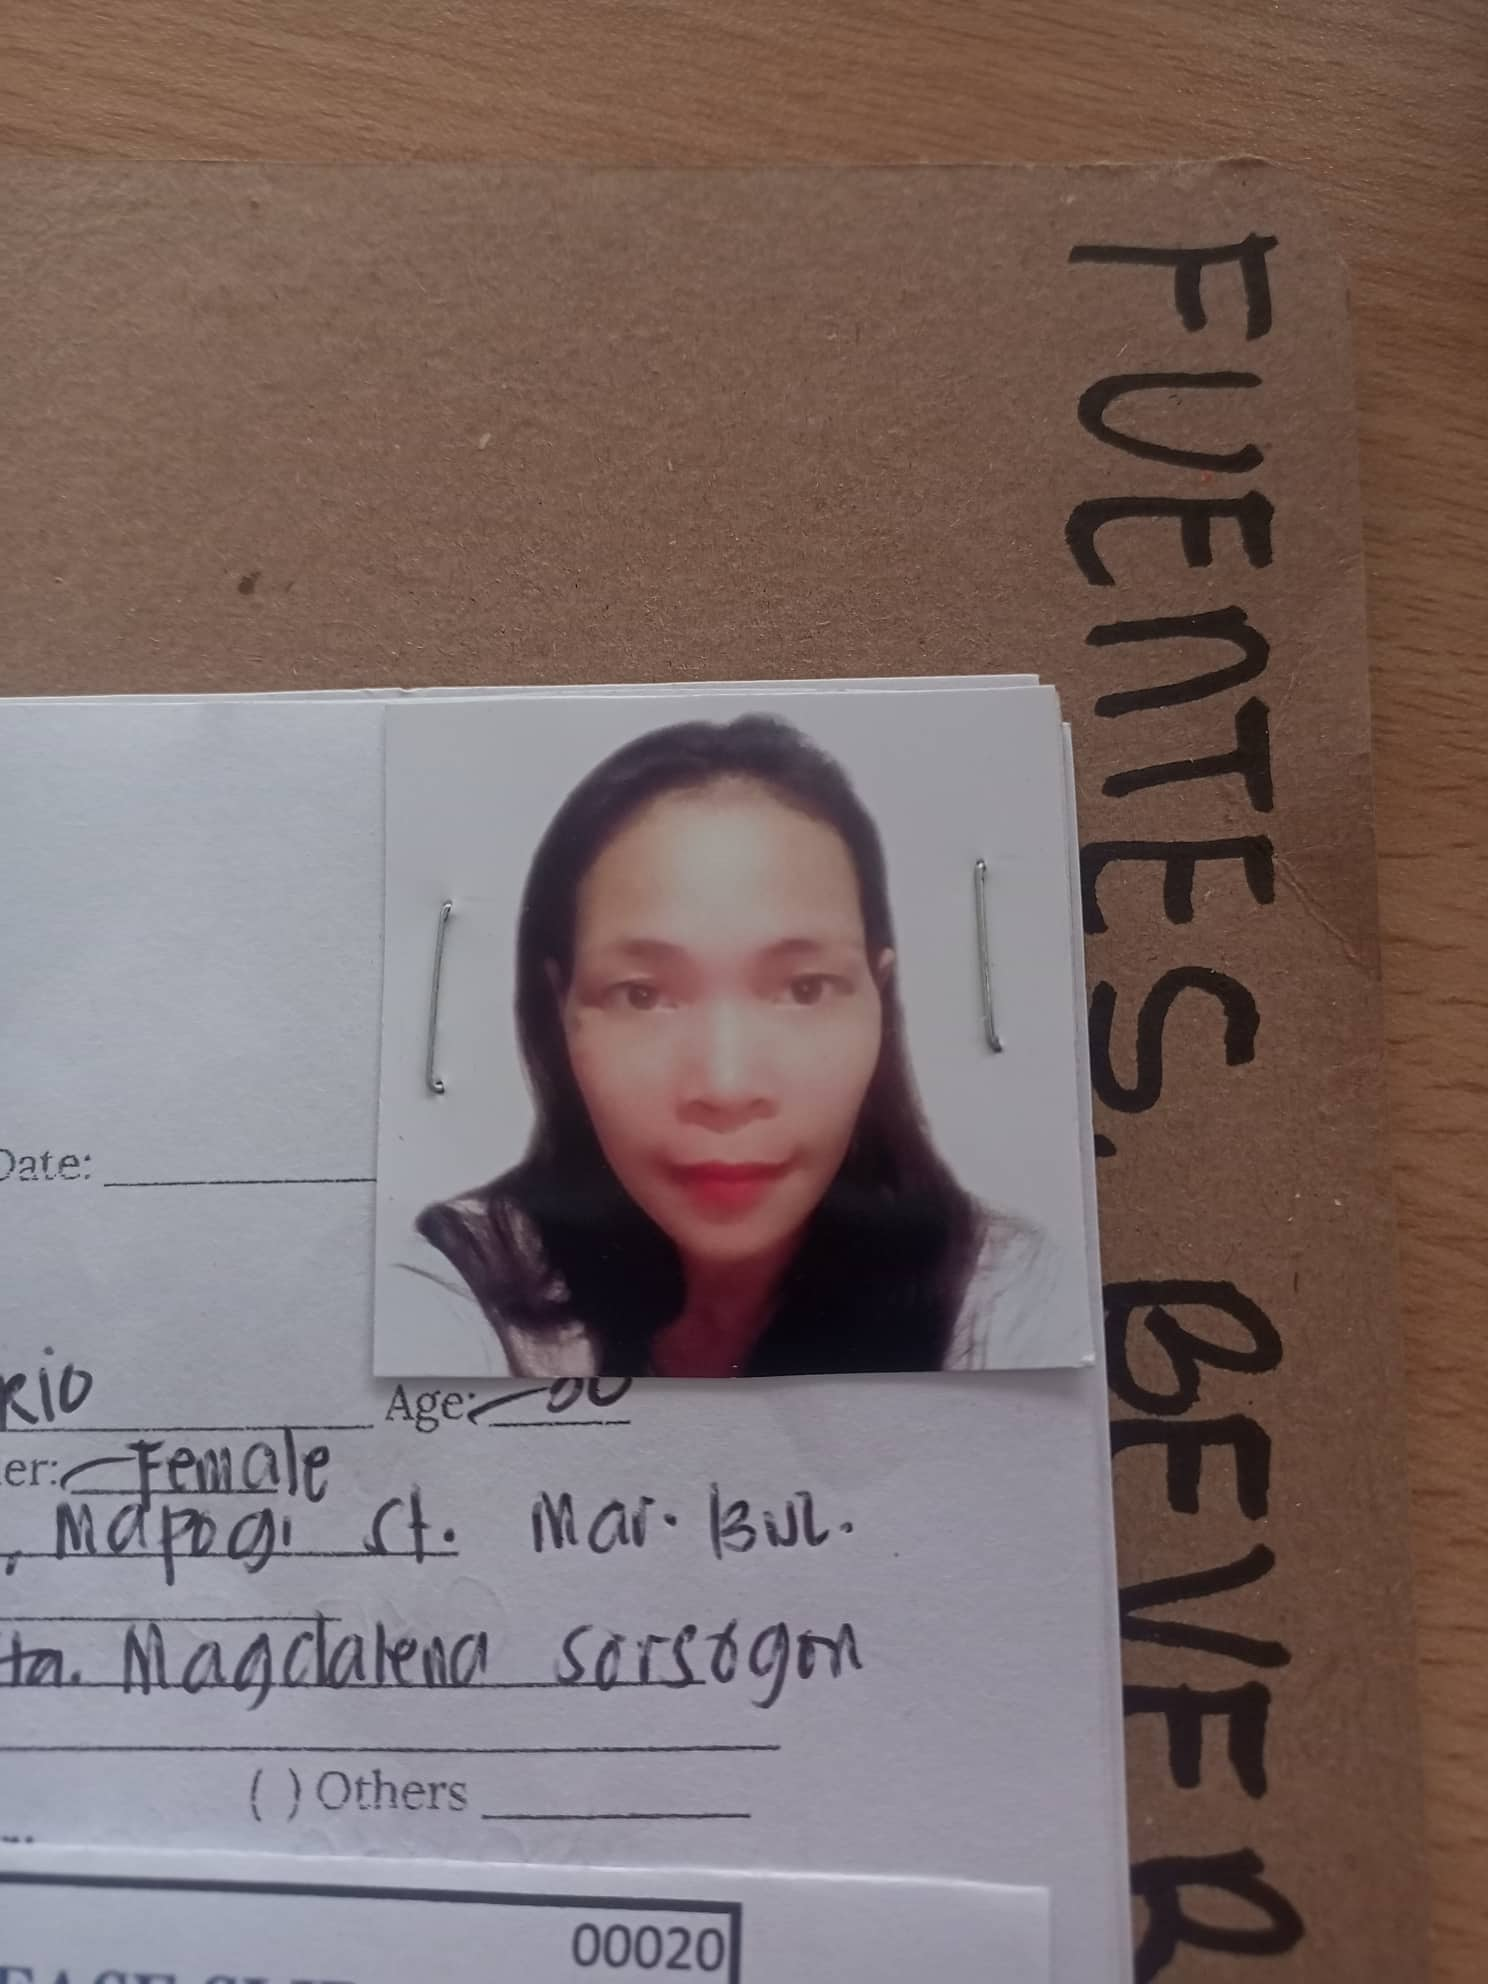 FUENTES, BEVER
Date:
RIO Age:
er: Female
, Mapogi St. Mar. Bul.
Sta. Magdalena Sorsogon
( ) Others
00020